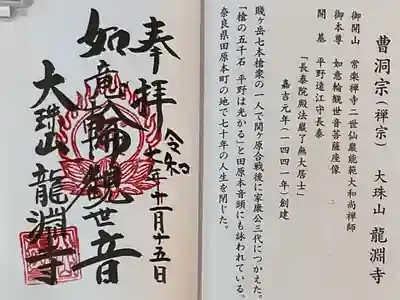 曹洞宗(禅宗) 大珠山 龍淵寺
御開山 常楽禅寺二世仙巌能範大和尚禅師
御本尊 如意輪観世音菩薩座像
開基 平野遠江守長泰
「長泰院殿法巌了無大居士」
嘉吉元年(一四四一年)創建
賤ヶ岳七本槍衆の一人で関ヶ原合戦後に家康公三代につかえた。
「槍の五千石 平野は光かる」と田原本音頭にも詠われている。
奈良県田原本町の地で七十年の人生を閉じた。
奉拝
令和七年十一月十五日
如意輪観世音
大珠山 龍淵寺